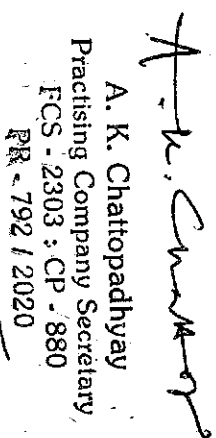 A. K. Chattop
A. K. Chattopadhyay
Practising Company Secretary
FCS - 2303 : CP - 880
PR - 792 / 2020